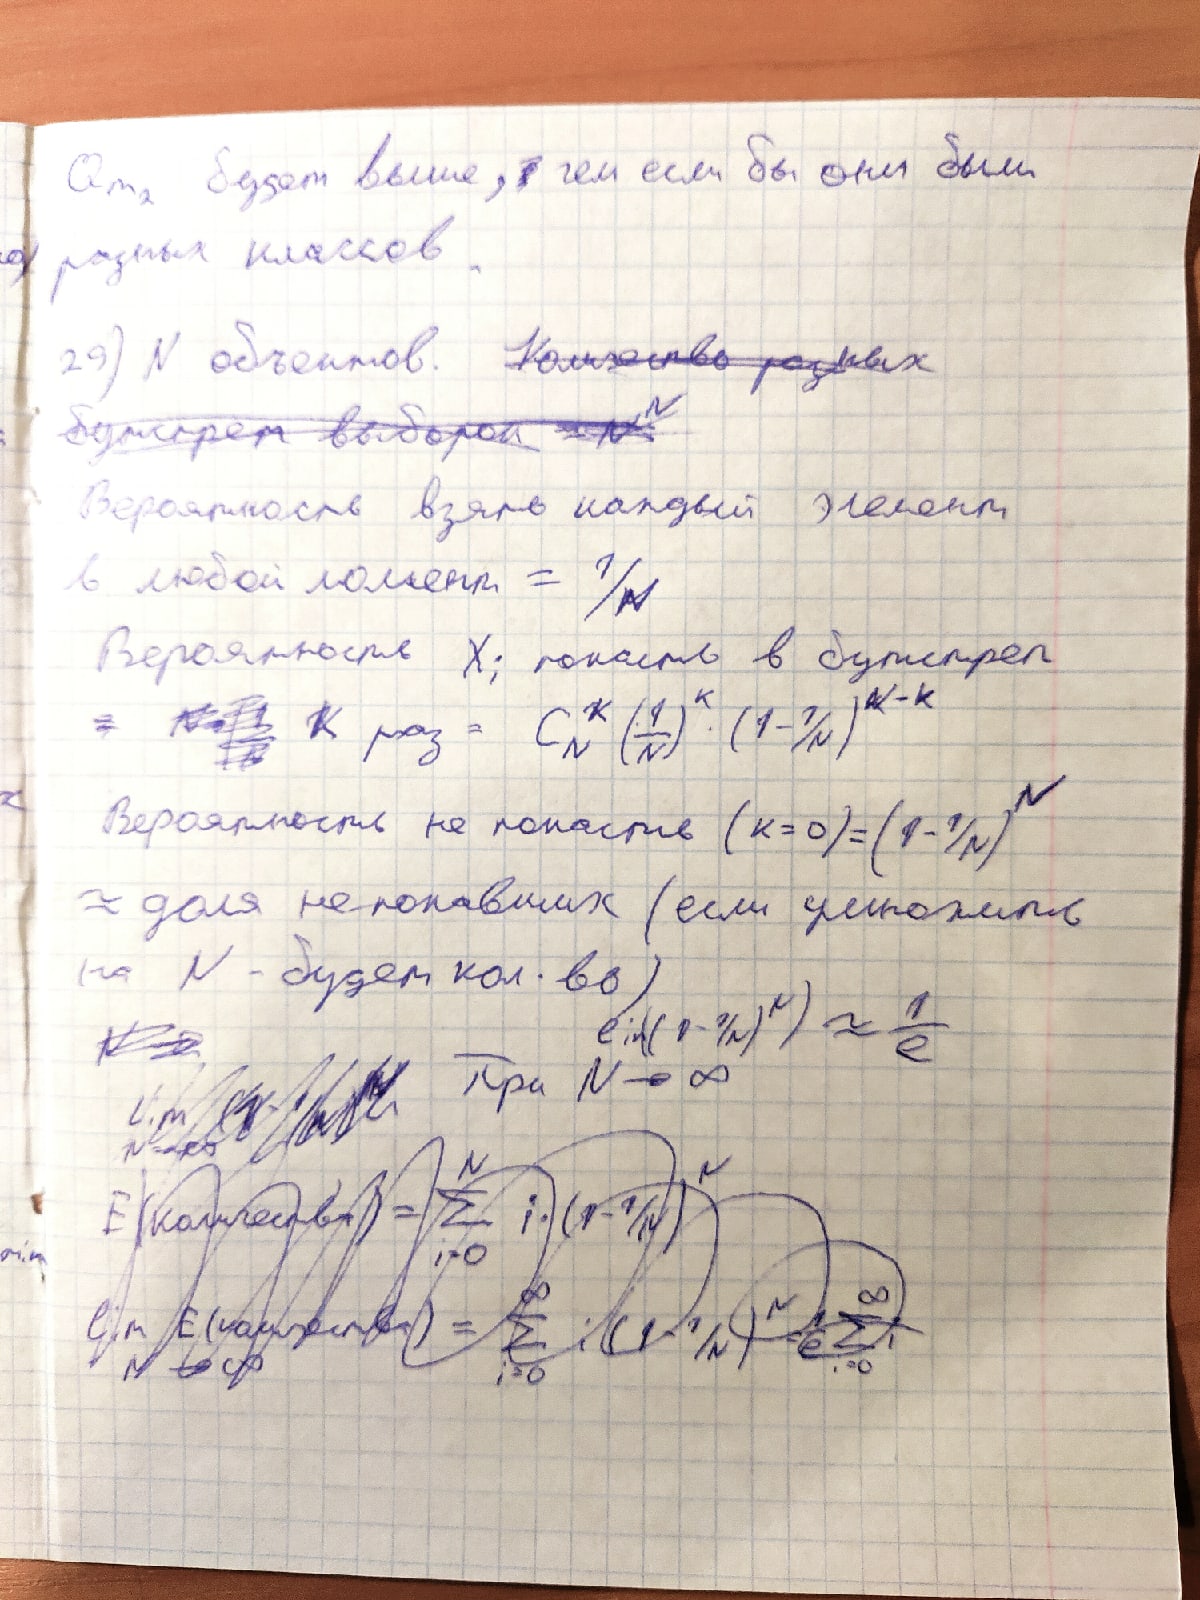 Qm₂ будет выше, чем если бы они были
разных классов.
29) N объектов. Количество разных
бутстреп выборок = N^N
Вероятность взять каждый элемент
в любой момент = 1/N
Вероятность Xi попасть в бутстреп
= K раз = C_N^K (1/N)^K · (1-1/N)^(N-K)
Вероятность не попасть (K=0)=(1-1/N)^N
≈ доля непопавших (если умножить
на N - будет кол-во)
lim((1-1/N)^N) ≈ 1/e
При N→∞
lim N→∞
E(количества) = Σ_(i=0)^N i·(1-1/N)^N
lim N→∞ E(количества) = Σ_(i=0)^∞ i (1-1/N)^N = 1/e Σ_(i=0)^∞ i